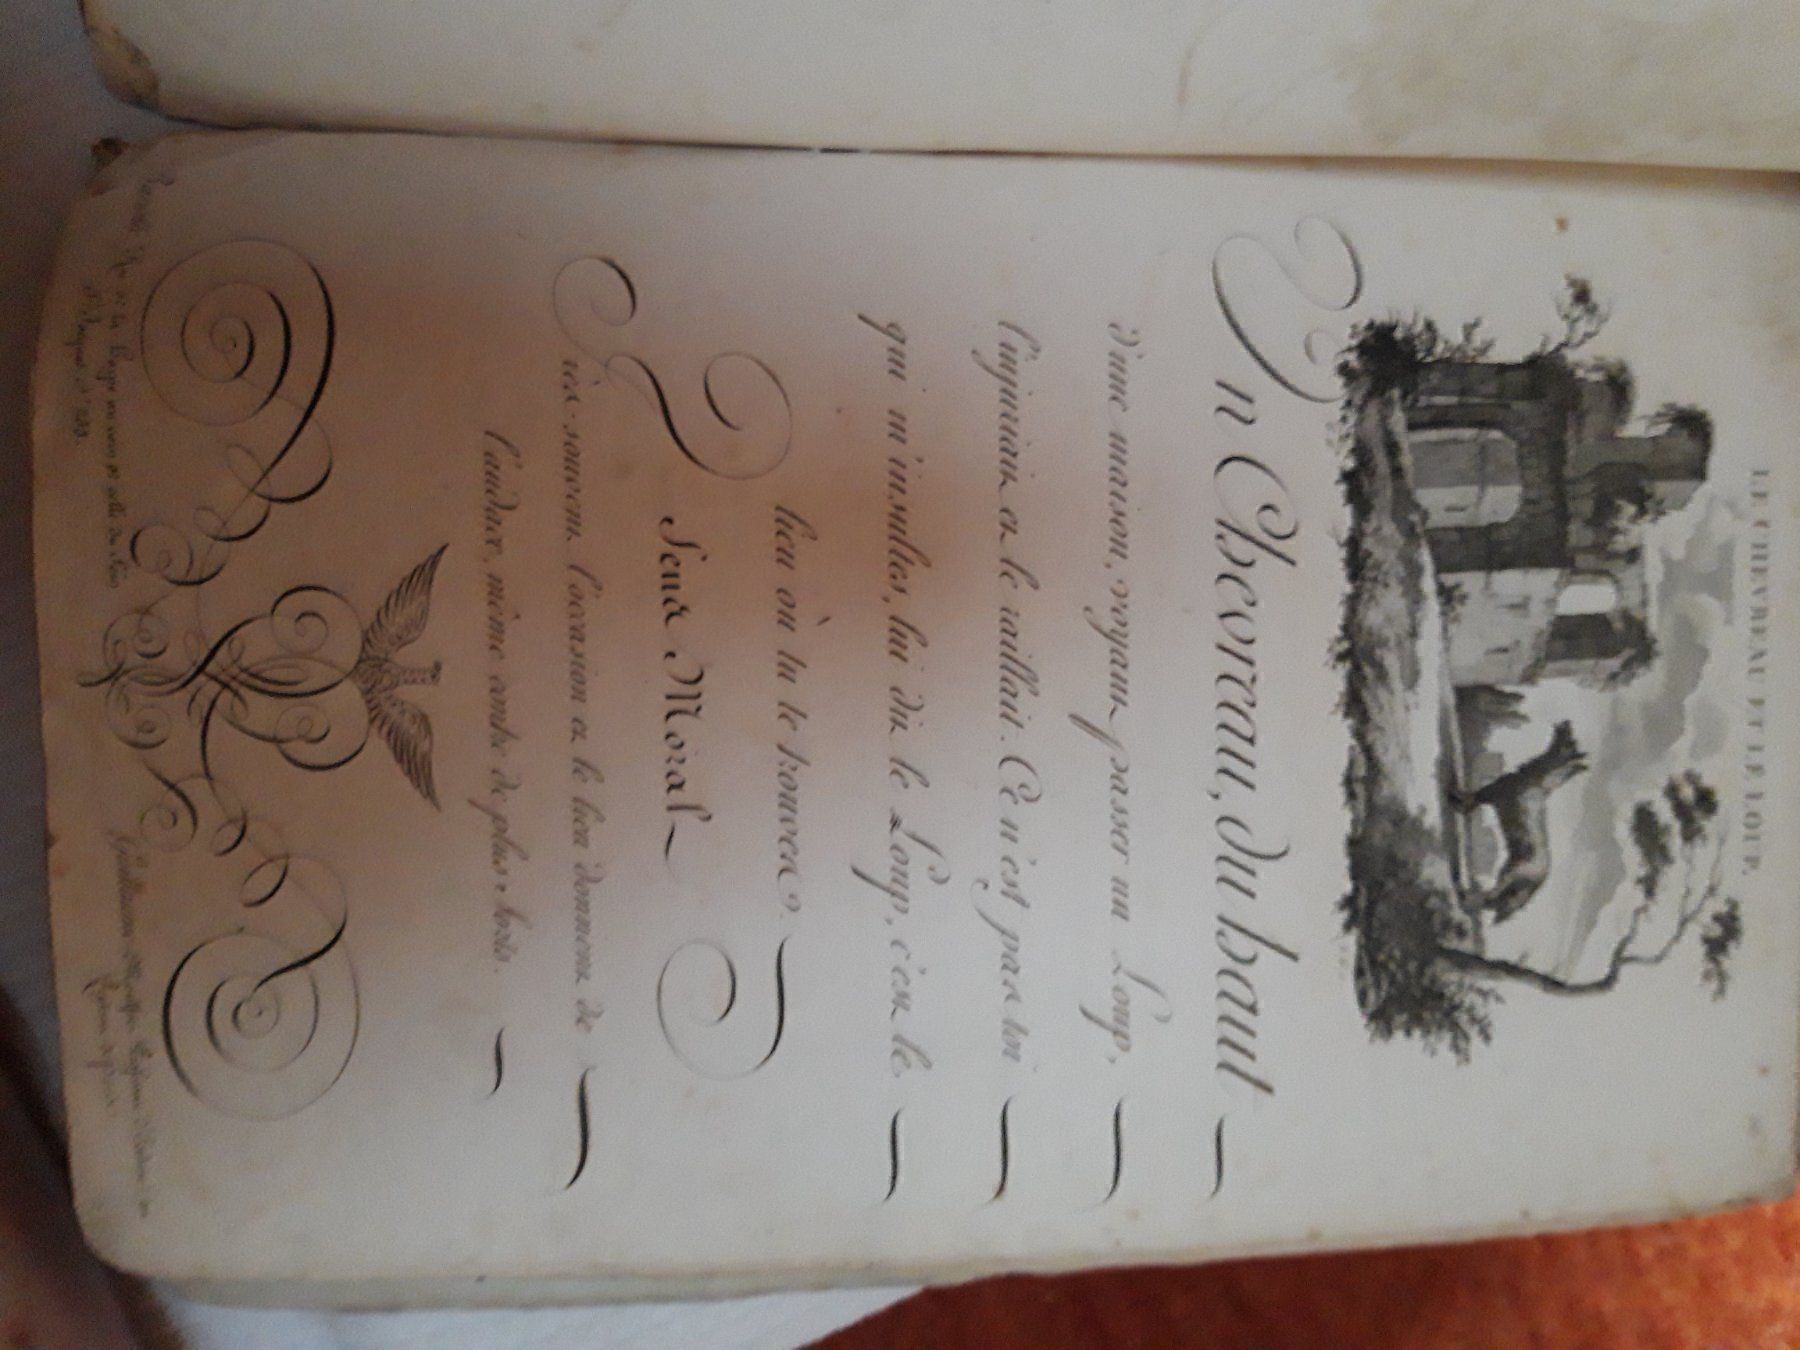 LE CHEVREAU ET LE LOUP.
Un Chevreau, du haut
d'une maison, voyant passer un Loup,
l'injuriait et le raillait. Ce n'est pas toi
qui m'insultes, lui dit le Loup, c'est le
lieu où tu te trouves.
Sens Moral
Très-souvent l'occasion et le lieu donnent de
l'audace, même contre de plus forts.